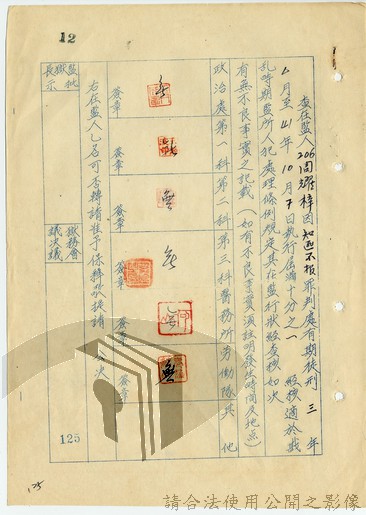 12
查在監人206周耀梓因知匪不报罪判處有期徒刑三年
月至41年10月7日执行屆滿十分之一 經核適於戡
乱時期監所人犯處理條例規定其在監行狀致查核如次
有無不良事實之記載(如有不良事實須註明發生時間及地点)
政治處第一科第二科第三科醫務所劳働隊其他
簽章
無
簽章
簽章
無
簽章
無
簽章
簽章
無
右在監人乙名可否轉請准予保釋敬請
公决
監獄長批示
獄務會議决議
125
125
請合法使用公開之影像